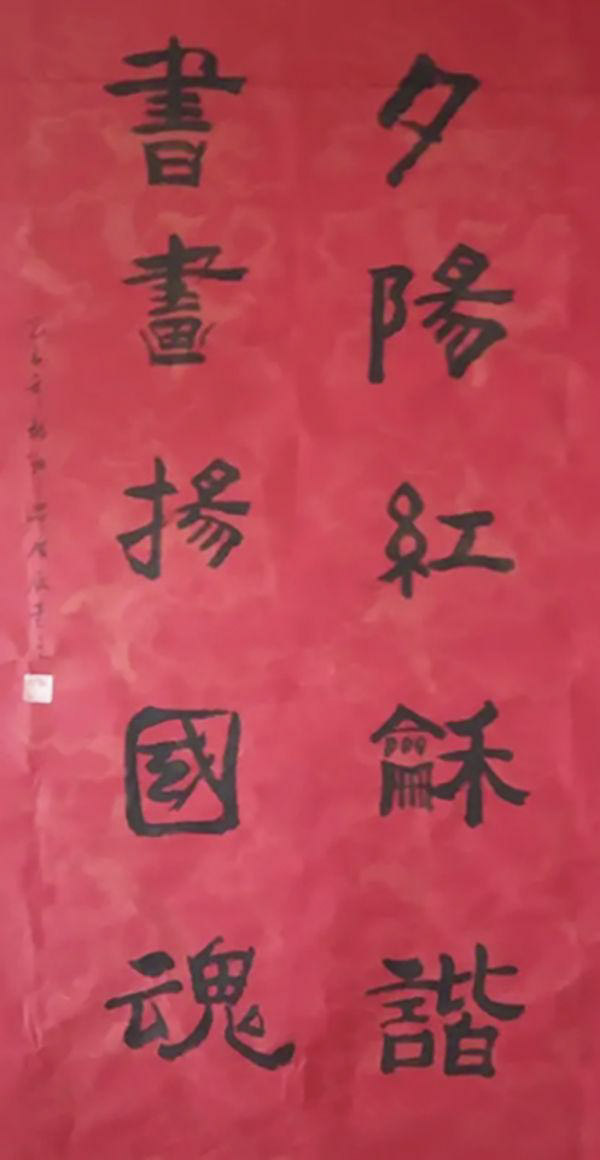 夕陽紅龢諧
書畫揚國魂